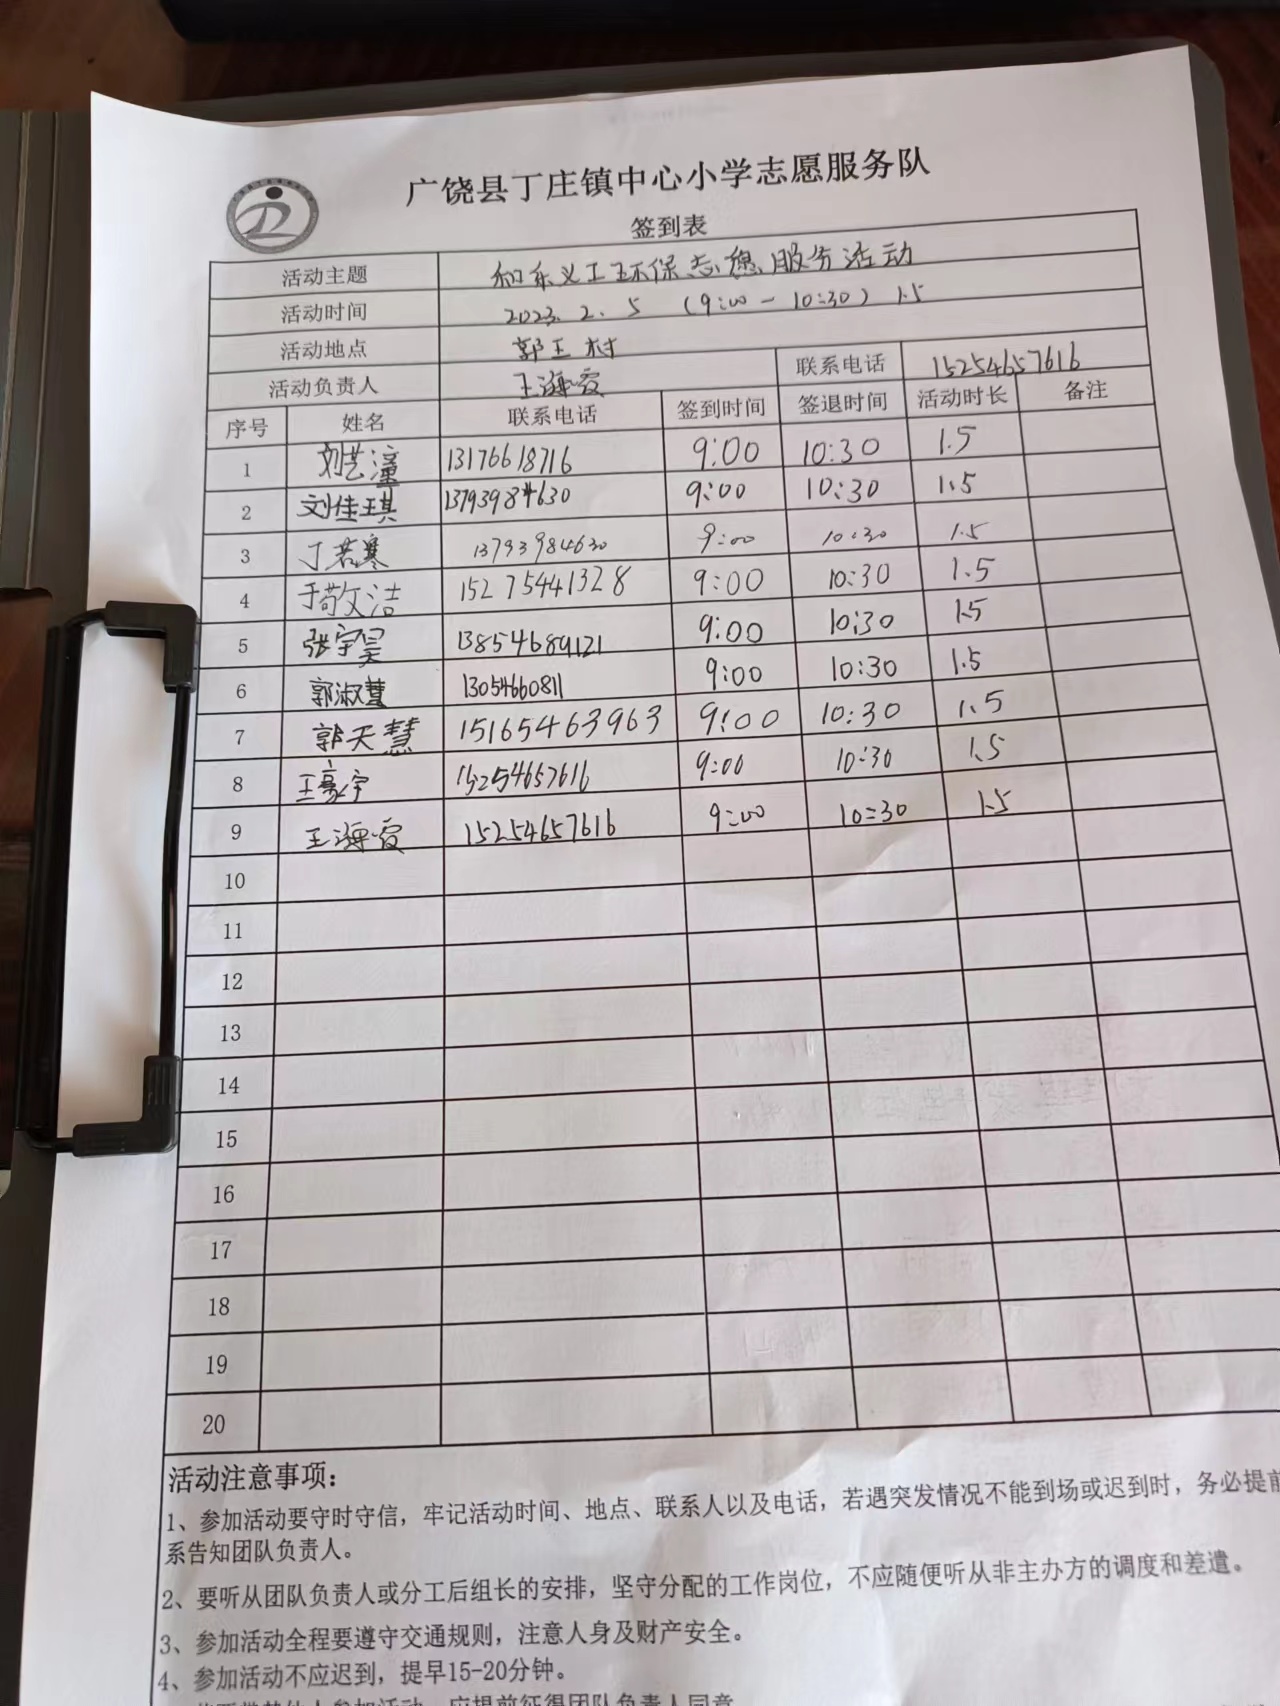 广饶县丁庄镇中心小学志愿服务队
签到表
活动主题 和乐义工环保志愿服务活动
活动时间 2023.2.5 (9:00-10:30) 1.5
活动地点 郭王村
活动负责人 王海霞 联系电话 15254657616
序号 姓名 联系电话 签到时间 签退时间 活动时长 备注
1 刘艺潼 13176618716 9:00 10:30 1.5
2 刘佳琪 13793984630 9:00 10:30 1.5
3 丁若寒 13793984630 9:00 10:30 1.5
4 于敬文洁 15275441328 9:00 10:30 1.5
5 张宇昊 13854689121 9:00 10:30 1.5
6 郭淑慧 13054660811 9:00 10:30 1.5
7 郭天慧 15165463963 9:00 10:30 1.5
8 王豪宇 15254657616 9:00 10:30 1.5
9 王海霞 15254657616 9:00 10:30 1.5
10
11
12
13
14
15
16
17
18
19
20
活动注意事项:
1、参加活动要守时守信，牢记活动时间、地点、联系人以及电话，若遇突发情况不能到场或迟到时，务必提前
系告知团队负责人。
2、要听从团队负责人或分工后组长的安排，坚守分配的工作岗位，不应随便听从非主办方的调度和差遣。
3、参加活动全程要遵守交通规则，注意人身及财产安全。
4、参加活动不应迟到，提早15-20分钟。
参加活动，应提前征得团队负责人同意